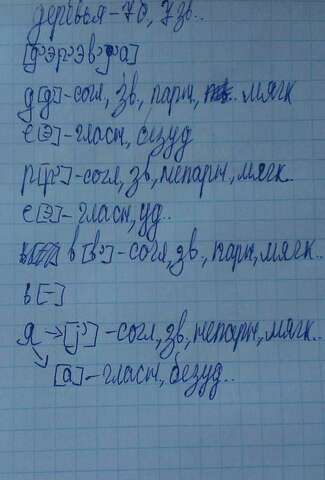 деревья-7б, 7зв..
[д'эр'эв'й'а]
д[д']-согл, зв, парн, мягк
е[э]-гласн, безуд
р[р']-согл, зв, непарн, мягк..
е[э]-гласн, уд..
в[в']-согл, зв, парн, мягк..
ь[-]
я→[j']-согл, зв, непарн, мягк..
↘[а]-гласн, безуд..